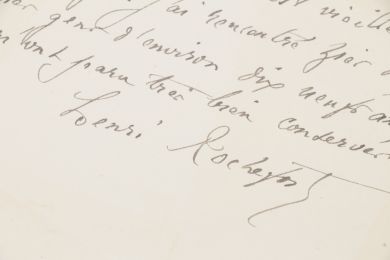 vieille
j'ai rencontré hier
gens d'environ dix neuf
ont paru très bien conservés
Henri Rochefort